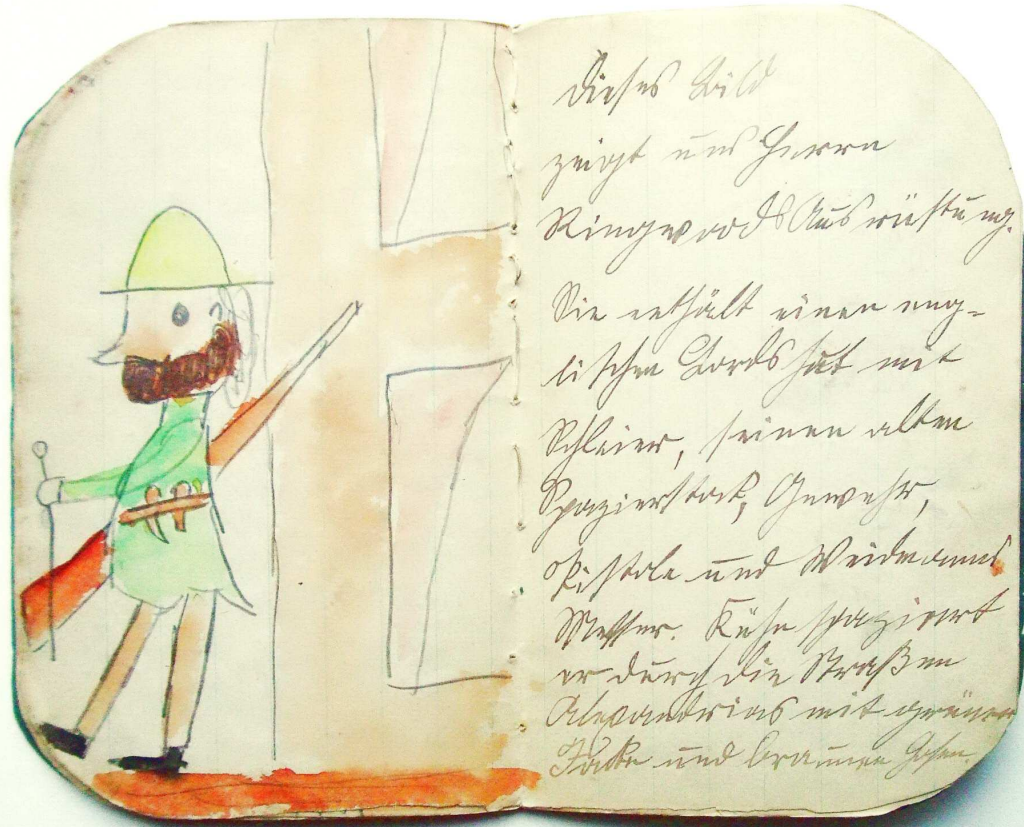 Dieses Bild
zeigt uns Herrn
Ringwoods Ausrüstung.
Sie enthält einen eng-
lischen Lordshut mit
Schleier, seinen alten
Spazierstock, Gewehr,
Pistole und Weidmanns
Messer. Kühn spaziert
er durch die Straßen
Alexandrias mit grüner
Jacke und braunen Hosen.